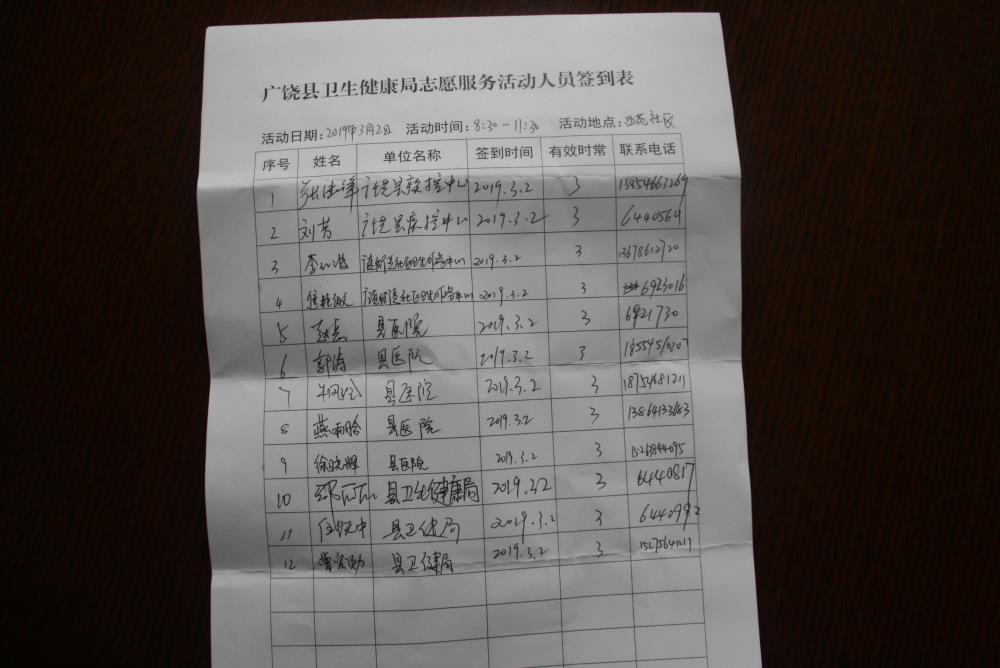 广饶县卫生健康局志愿服务活动人员签到表
活动日期:2019年3月2日 活动时间:8:30-11:30 活动地点:西苑社区
序号 姓名 单位名称 签到时间 有效时常 联系电话
1 广饶县疾控中心 2019.3.2 3
2 刘芳 广饶县疾控中心 2019.3.2 3 6440564
3 2019.3.2 3 13678612720
4 2019.3.2 3 6923016
5 赵杰 县医院 2019.3.2 3 6921730
6 郭涛 县医院 2019.3.2 3
7 县医院 2019.3.2 3 18754681211
8 燕雨晗 县医院 2019.3.2 3 13864133683
9 徐晓辉 县医院 2019.3.2 3 15263844095
10 县卫生健康局 2019.3.2 3 6440817
11 县卫健局 2019.3.2 3 6440992
12 县卫健局 2019.3.2 3